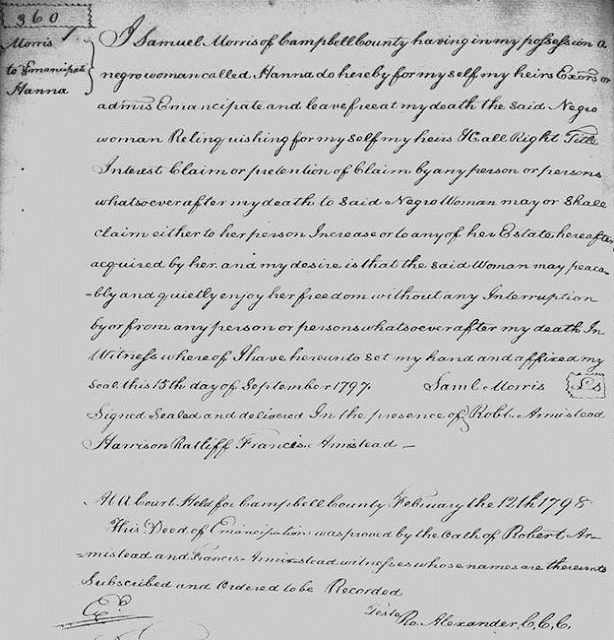 360
Morris
to Emancipate
Hanna
I Samuel Morris of Campbell County having in my possession a
negro woman called Hanna do hereby for my self my heirs Exors or
admrs Emancipate and leave free at my death the said Negro
woman Relinquishing for my self my heirs &c all Right Title
Interest Claim or pretention of Claim by any person or persons
whatsoever after my death to said Negro Woman may or Shall
claim either to her person Increase or to any of her Estate hereafter
acquired by her and my desire is that the said Woman may peaca
-bly and quietly enjoy her freedom without any Interruption
by or from any person or persons whatsoever after my death In
Witness whereof I have hereunto set my hand and affixed my
seal this 15th day of September 1797 Saml Morris Ls
Signed Sealed and delivered In the presence of Robt. Armistead
Harrison Ratliff Francis Armistead
At A Court Held for Campbell County February the 12th 1798
This Deed of Emancipation was proved by the Oath of Robert Ar-
-mistead and Francis Armistead witnesses whose names are thereunto
Subscribed and Ordered to be Recorded
Teste
Ro. Alexander, C.C.C.